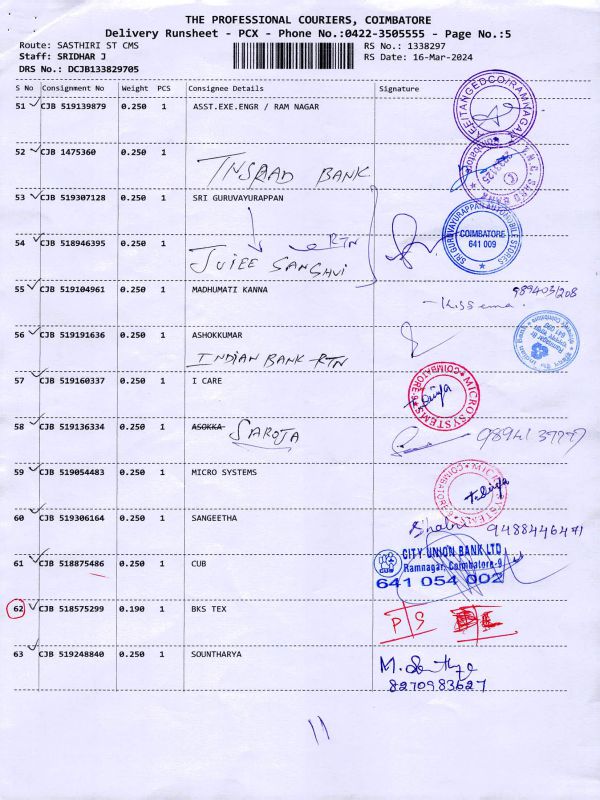 THE PROFESSIONAL COURIERS, COIMBATORE
Delivery Runsheet - PCX - Phone No.:0422-3505555 - Page No.:5
Route: SASTHIRI ST CMS RS No.: 1338297
Staff: SRIDHAR J RS Date: 16-Mar-2024
DRS No.: DCJB133829705
S No Consignment No Weight PCS Consignee Details Signature
51 CJB 519139879 0.250 1 ASST.EXE.ENGR / RAM NAGAR
52 CJB 1475360 0.250 1
TNSRAD BANK
53 CJB 519307128 0.250 1 SRI GURUVAYURAPPAN
SRI GURUVAYURAPPAN AUTOMOBILE STORES
COIMBATORE
641 009
54 CJB 518946395 0.250 1
RTN
JUIEE SANGHVI
55 CJB 519104961 0.250 1 MADHUMATI KANNA
56 CJB 519191636 0.250 1 ASHOKKUMAR
INDIAN BANK RTN
57 CJB 519160337 0.250 1 I CARE
MICRO SYSTEMS
COIMBATORE-9
58 CJB 519136334 0.250 1 ASOKKA SAROJA
59 CJB 519054483 0.250 1 MICRO SYSTEMS
60 CJB 519306164 0.250 1 SANGEETHA
9488446471
61 CJB 518875486 0.250 1 CUB
CITY UNION BANK LTD
Ramnagar, Coimbatore-9
641 054 002
62 CJB 518575299 0.190 1 BKS TEX
P S
63 CJB 519248840 0.250 1 SOUNTHARYA
8270983627